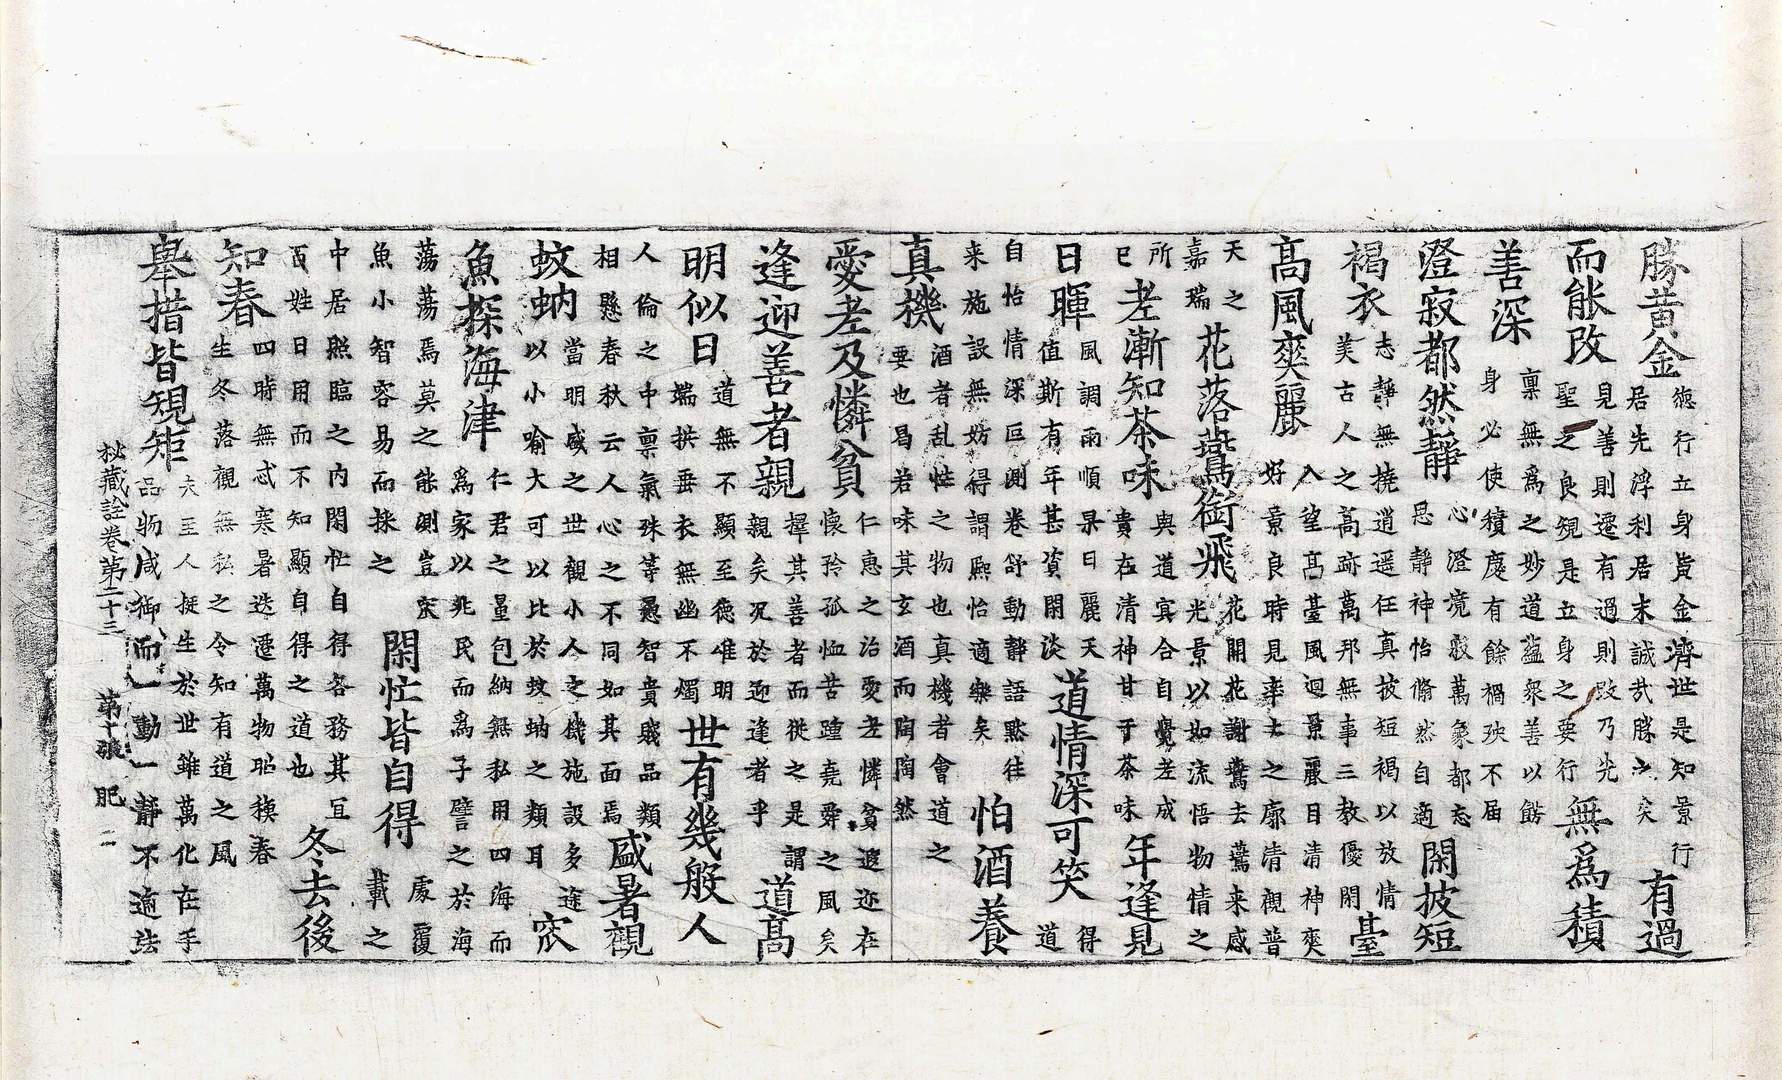 勝黃金德行立身貴金濟世是知景行居先浮利居末誠哉勝之矣有過
而能改見善則遷有過則改乃先聖之良規是立身之要行無爲積
善深稟無爲之妙道蘊衆善以餝身必使積慶有餘禍殃不届
澄寂都然靜心澄境寂萬象都忘思靜神怡翛然自適閑披短
褐衣志靜無撓逍遥任真披短褐以放情美古人之高跡萬邦無事三教優閑臺
高風爽麗入望高臺風迴景麗目清神爽好景良時見率土之廓清觀普
天之嘉瑞花落鷰銜飛花開花謝鷰去鷰来感光景以如流悟物情之
所已老漸知茶味與道冥合自覺老成貴在清神甘于茶味年逢見
日暉風調雨順景日麗天值斯有年甚資閑淡道情深可笑得道
自怡情深叵測卷舒動靜語默往来施設無妨得謂熙怡適樂矣怕酒養
真機酒者乱性之物也真機者會道之要也曷若味其玄酒而陶陶然
愛老及憐貧仁惠之治愛老憐貧遐迩在懷矜孤恤苦踵堯舜之風矣
逢迎善者親擇其善者而從之是謂親矣况於迎逢者乎道高
明似日道無不顯至德唯明端拱垂衣無幽不燭世有幾般人
人倫之中稟氣殊等愚智貴賤品類相懸春秋云人心之不同如其面焉盛暑觀
蚊蚋當明盛之世觀小人之機施設多途以小喻大可以比於蚊蚋之類耳底
魚探海津仁君之量包納無私用四海而爲家以兆民而爲子譬之於海
蕩蕩焉莫之能測豈底魚小智容易而探之閑忙皆自得處覆載之
中居照臨之内閑忙自得各務其宜百姓日用而不知顯自得之道也冬去後
知春四時無忒寒暑迭遷萬物昭穌春生冬落觀無私之令知有道之風
舉措皆規矩夫至人挺生於世雖萬化在手品物咸御而一動一靜不逾法
秘藏詮卷第二十三 第十張 肥 二